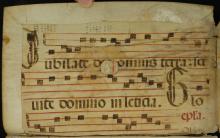 Jubilate deo omnis terra: ser
uite domino in leticia. Glo